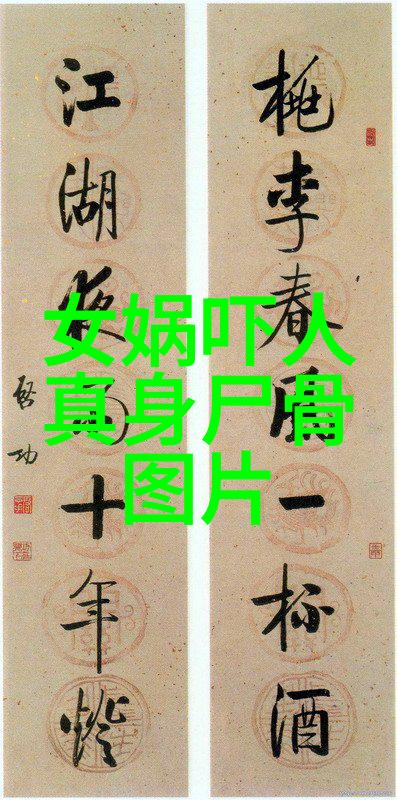 桃李春風一杯酒
江湖夜雨十年燈
啓功
女娲吓人
真身尸骨
图片